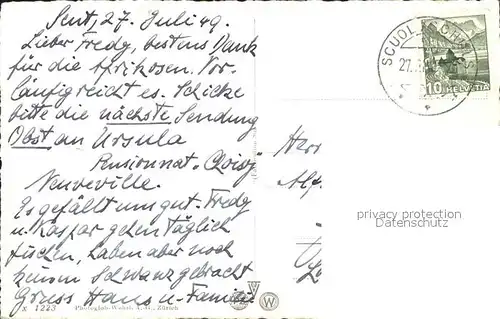 Sent, 27. Juli 49.
Lieber Fredy, bestens Dank
für die Aprikosen. Vor-
läufig reicht es. Schicke
bitte die nächste Sendung
Obst an Ursula
Pensionnat "Choisy"
Neuveville.
Es gefällt uns gut. Fredy
u. Kaspar gehen täglich
fischen, haben aber noch
keinen Schwanz gebracht
Gruss Hans u. Familie
x 1223 Photoglob-Wehrli A. G., Zürich
W
SCUOL
27.
10 HELVETIA
Herr
Alf.
privacy protection
Datenschutz